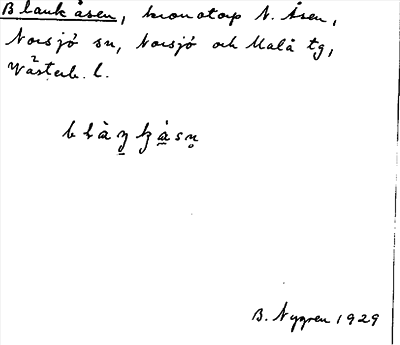 Blankåsen, kronotorp N. Åsen,
Norsjö sn, Norsjö och Malå tg,
Västerb. l.
B. Nygren 1929